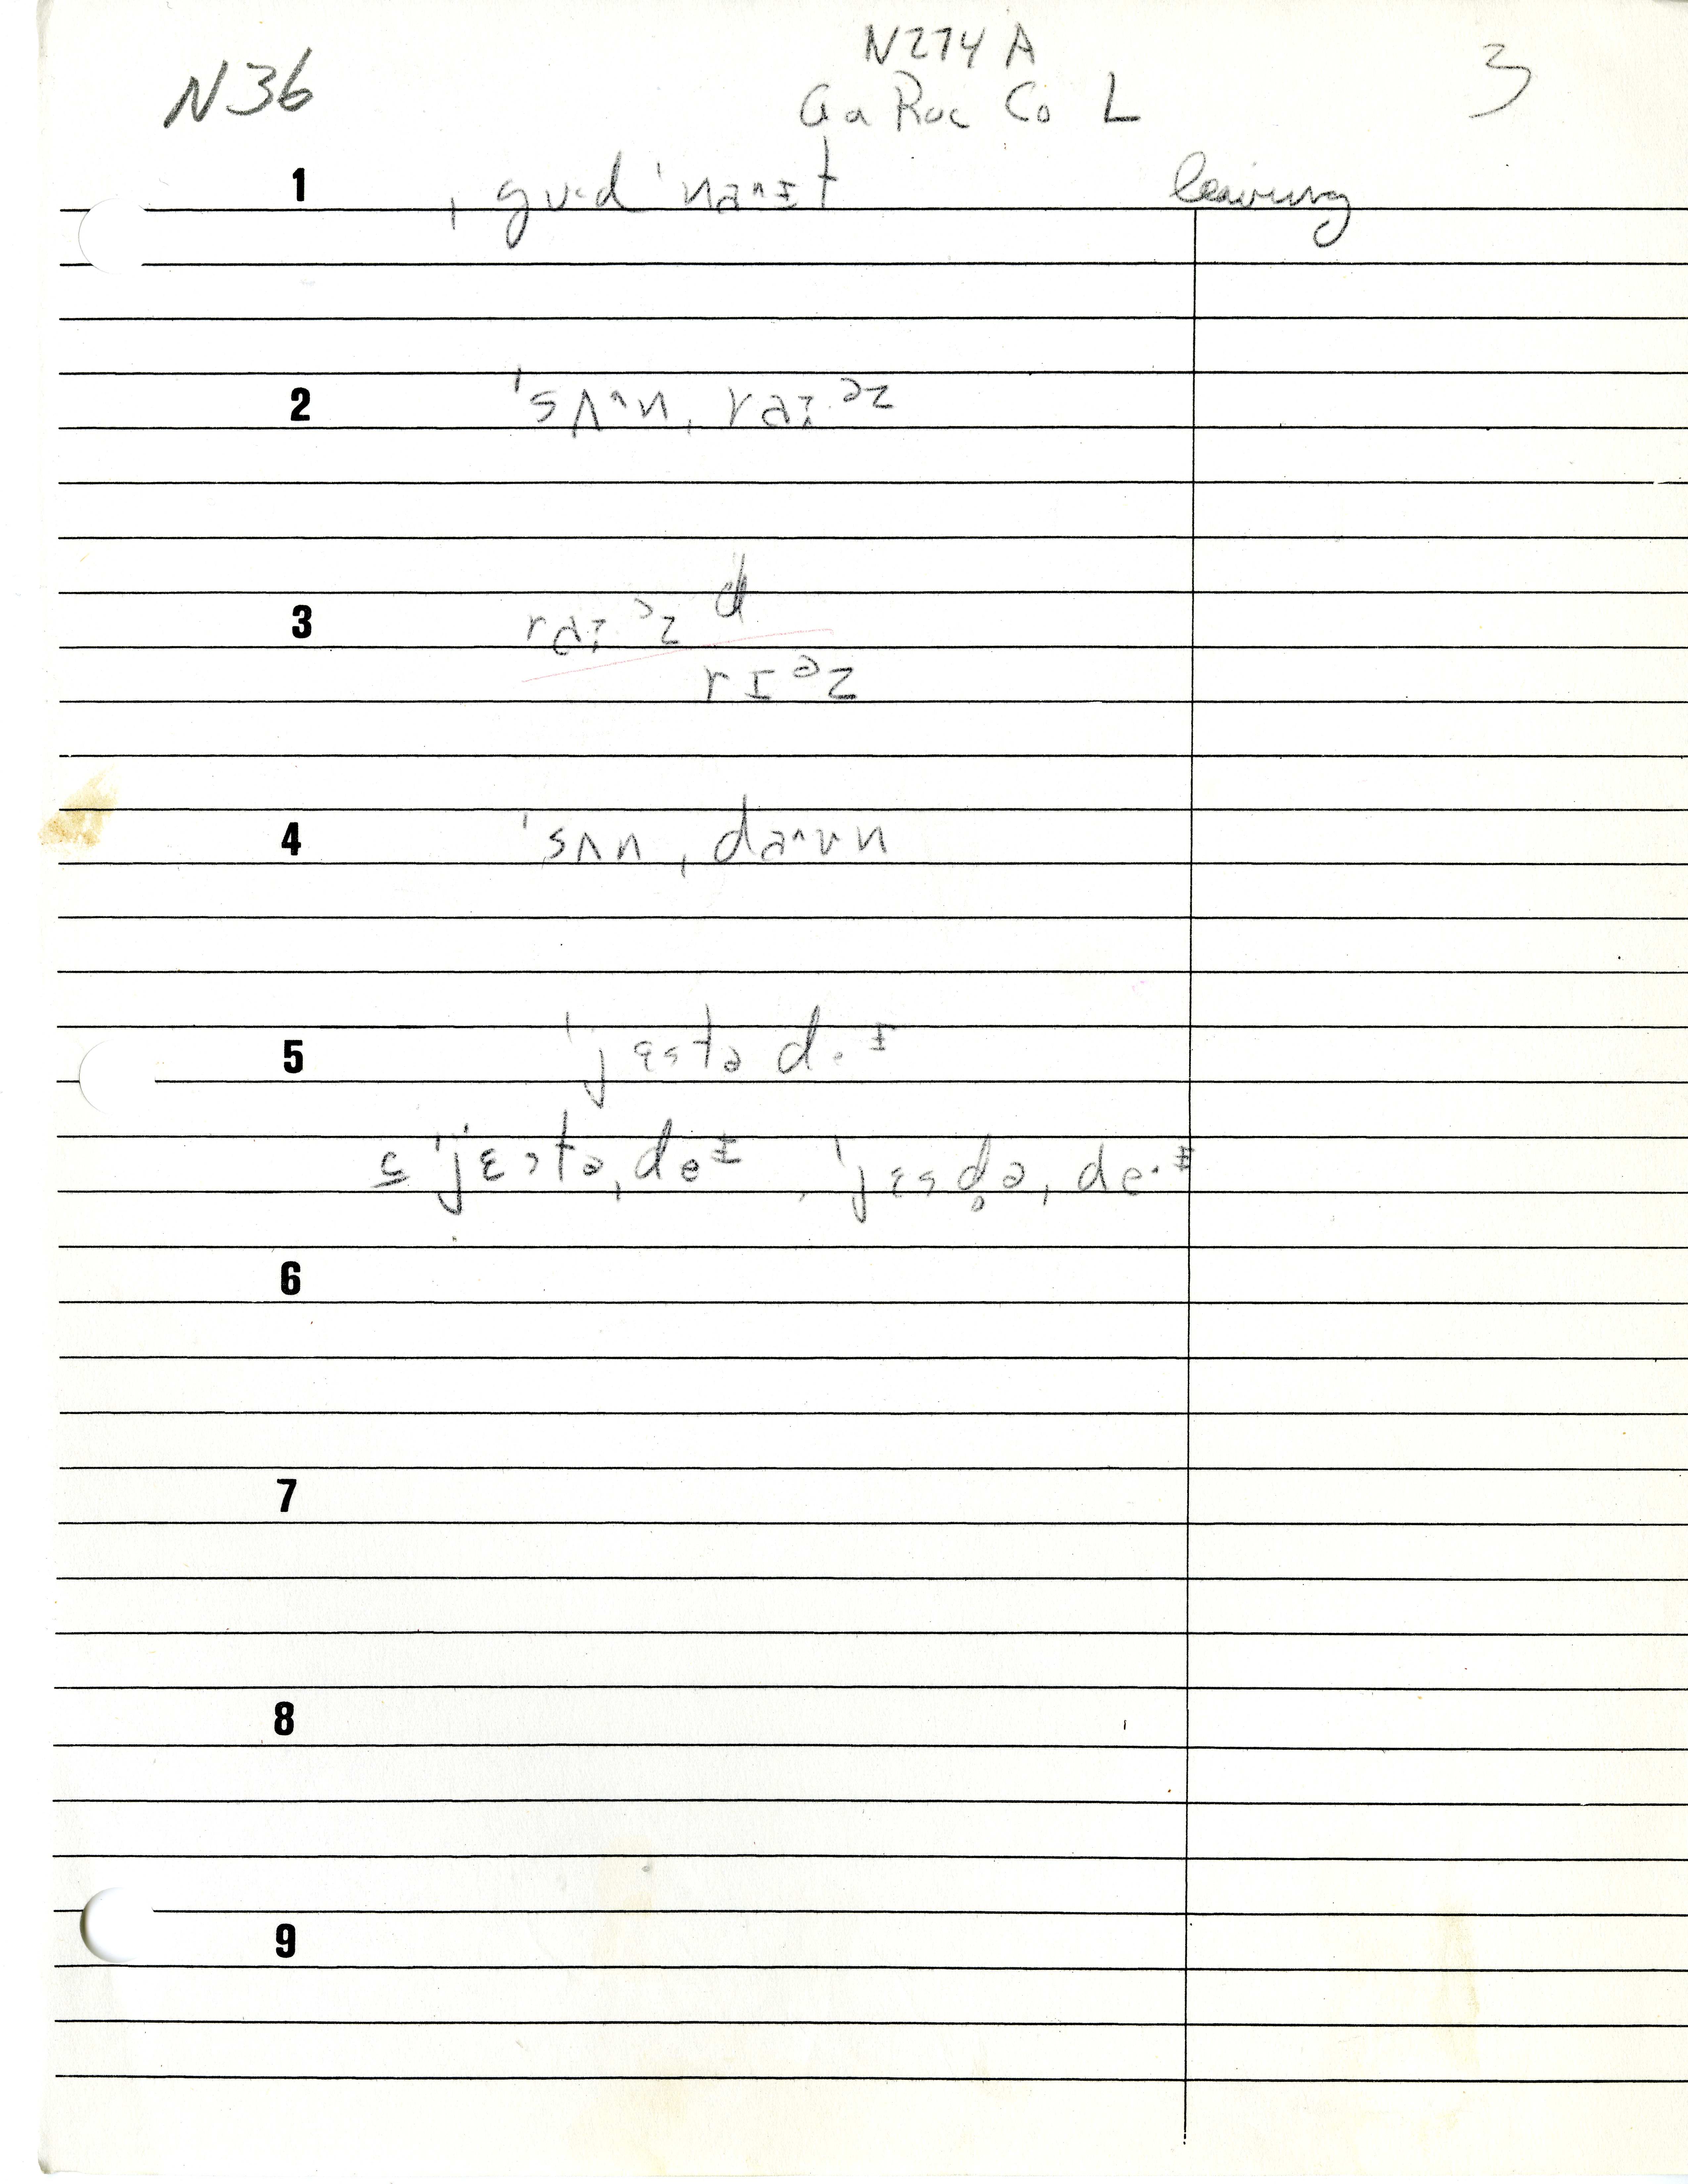 N274 A
N36 3
Ga Roc Co L
1 ˌgʊ·d ˈnaᶺɪt leaving
2 ˈsʌᶺnˌraɪᵊz
3 raɪᵊz d
rɪᵊz
4 ˈsʌnˌdaᶺʊn
5 ˈjɛstə d·ɪ
c ˈjɛstəˌdeɪ, ˈjɛsd̥əˌde·ɪ
6
7
8
9